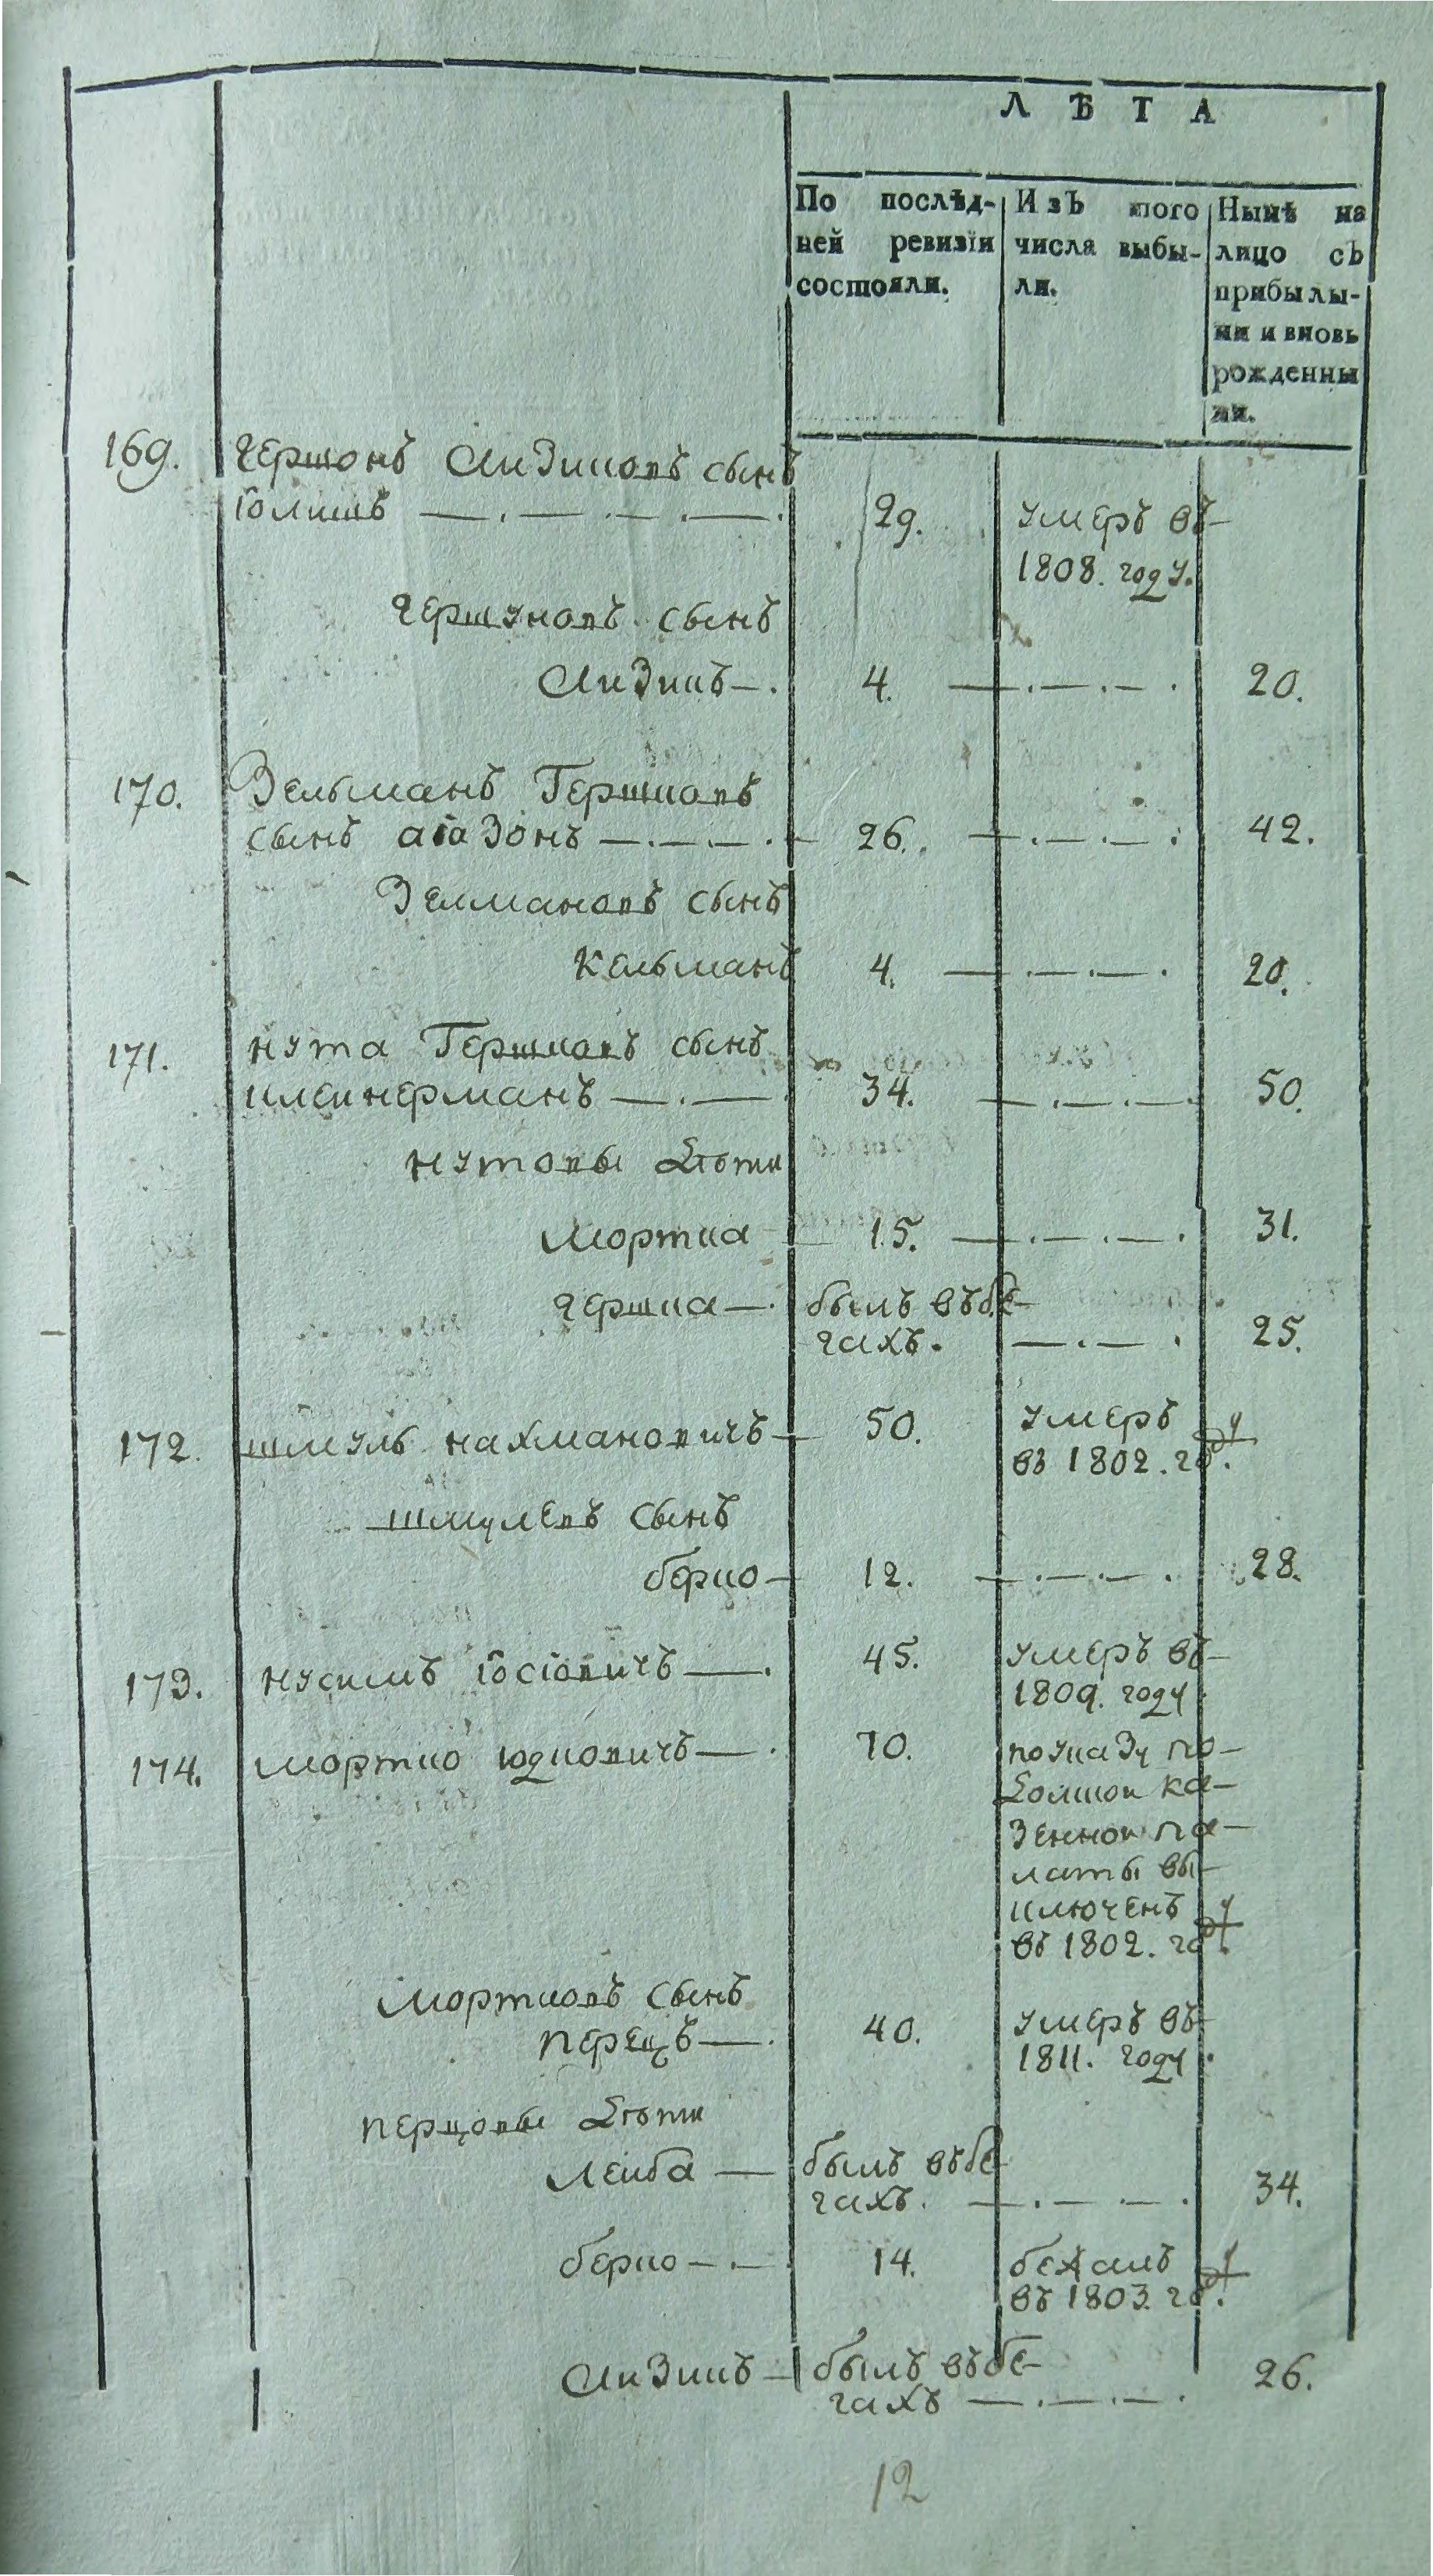 ЛѢТА
По послѣд-
ней ревизіи
состояли.
Изъ того
числа выбы-
ли.
Нынѣ на
лицо съ
прибылы-
ми и вновь
рожденны
ми.
169. Гершонъ Айзиковъ сынъ
29. умеръ въ
1808. году.
Гершуновъ сынъ
Айзикъ 4. 20.
170. Зельманъ Гершковъ
сынъ 26. 42.
Зелмановъ сынъ
Кельманъ 4. 20.
171. Нута Гершковъ сынъ
клейнерманъ 34. 50.
Нутовы дѣти
Мортка 15. 31.
Гершка былъ въ бѣ-
гахъ. 25.
172. Шмуль Нахмановичъ 50. умеръ
въ 1802. году.
Шмулевъ сынъ
берко 12. 28.
173. Нусимъ Іосіовичъ 45. умеръ въ
1809. году
174. Мортко Юдковичъ 70. по указу по-
долской ка-
зенной па-
латы вы-
ключенъ
въ 1802. году.
Мортковъ сынъ
перецъ 40. умеръ въ
1811. году.
перцовы дѣти
Лейба былъ въ бе-
гахъ. 34.
берко 14. бежалъ
въ 1803. году.
Айзикъ былъ въ бе-
гахъ 26.
12